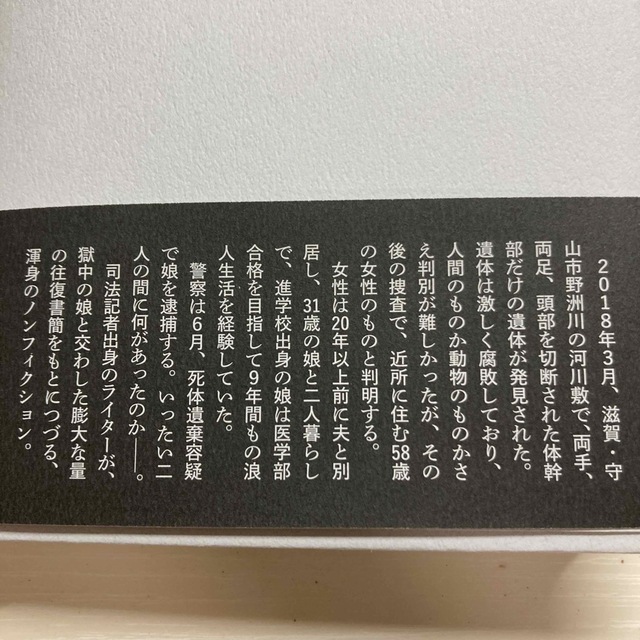 2018年3月、滋賀・守
山市野洲川の河川敷で、両手、
両足、頭部を切断された体幹
部だけの遺体が発見された。
遺体は激しく腐敗しており、
人間のものか動物のものかさ
え判別が難しかったが、その
後の捜査で、近所に住む58歳
の女性のものと判明する。
女性は20年以上前に夫と別
居し、31歳の娘と二人暮らし
で、進学校出身の娘は医学部
合格を目指して9年間もの浪
人生活を経験していた。
警察は6月、死体遺棄容疑
で娘を逮捕する。いったい二
人の間に何があったのか――。
司法記者出身のライターが、
獄中の娘と交わした膨大な量
の往復書簡をもとにつづる、
渾身のノンフィクション。